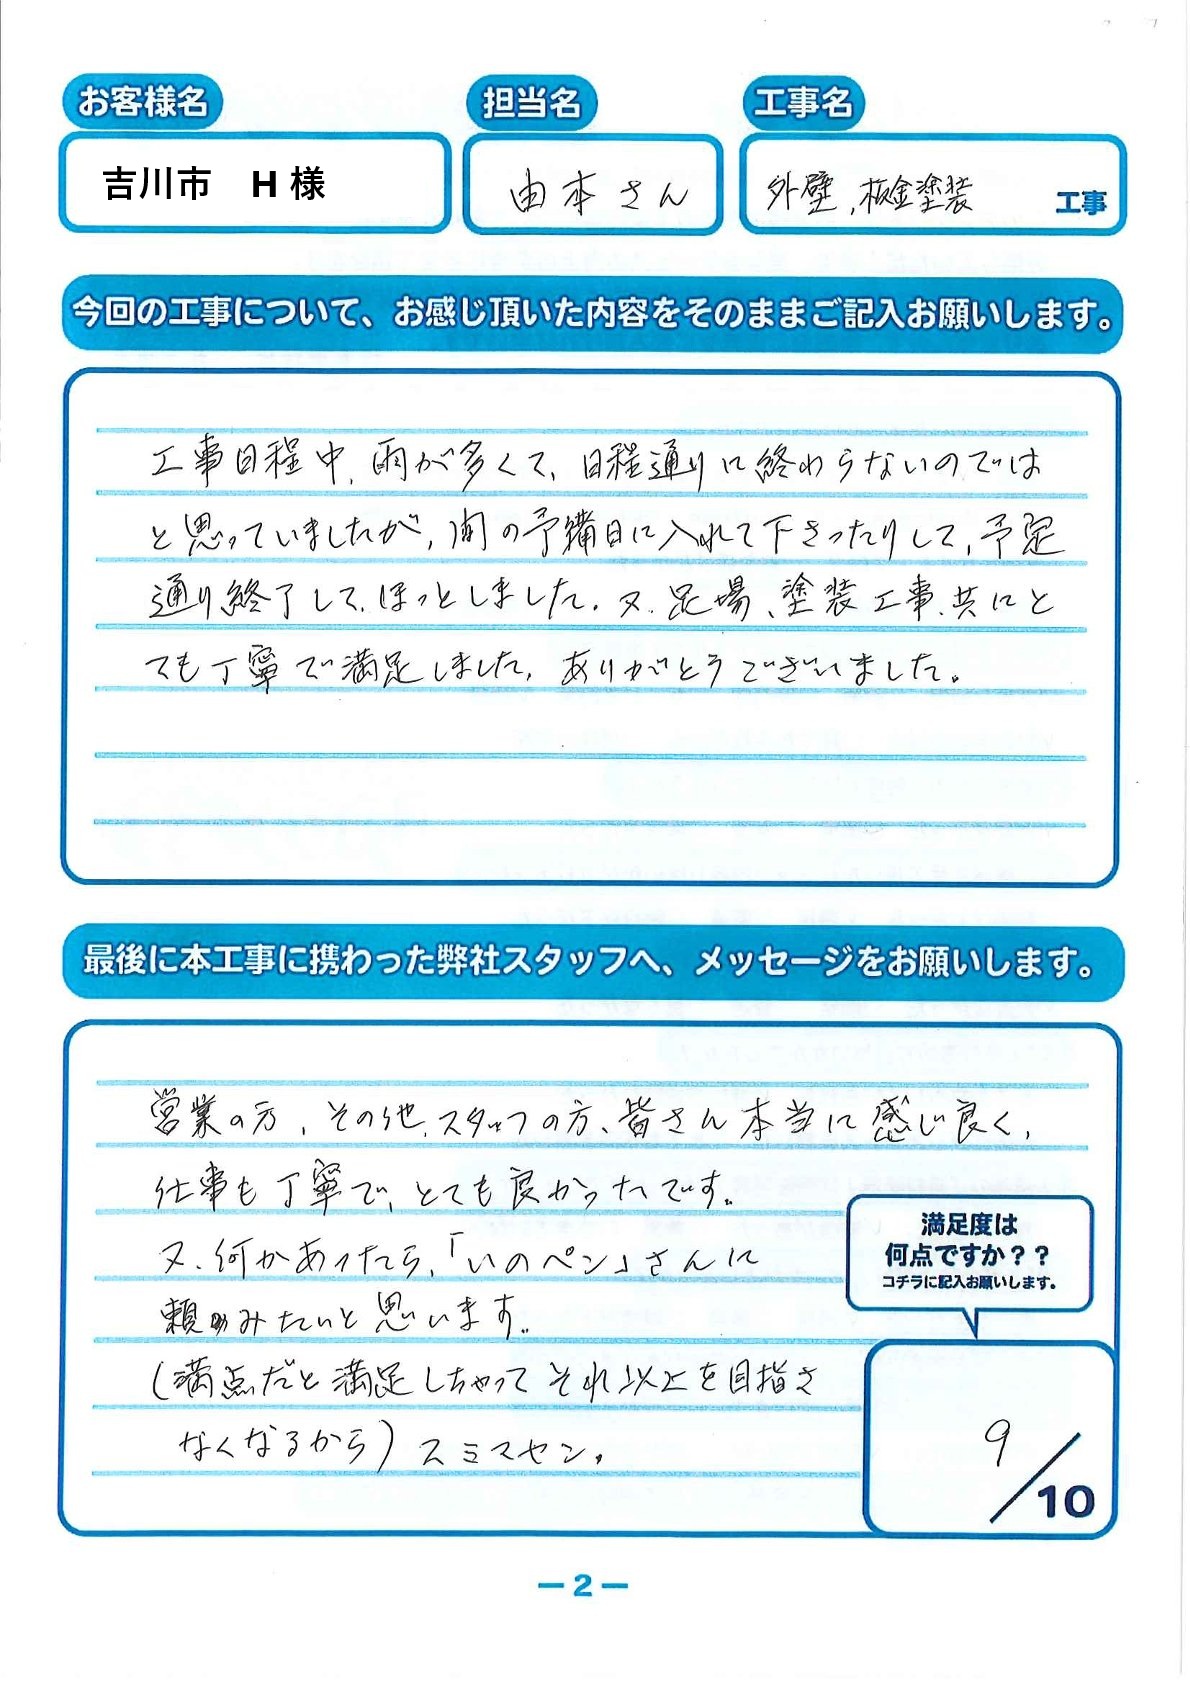 お客様名
担当名
工事名
吉川市 H 様
由本さん
外壁、板金塗装
工事
今回の工事について、お感じ頂いた内容をそのままご記入お願いします。
工事日程中、雨が多くて、日程通りに終わらないのでは
と思っていましたが、間の予備日に入れて下さったりして、予定
通り終了して、ほっとしました。又、足場、塗装工事、共にと
ても丁寧で満足しました。ありがとうございました。
最後に本工事に携わった弊社スタッフへ、メッセージをお願いします。
営業の方、その他、スタッフの方、皆さん本当に感じ良く、
仕事も丁寧で、とても良かったです。
又、何かあったら、「いのペン」さんに
頼みたいと思います。
(満点だと満足しちゃってそれ以上を目指さ
なくなるから)スミマセン。
満足度は
何点ですか??
コチラに記入お願いします。
9/10
ー2ー